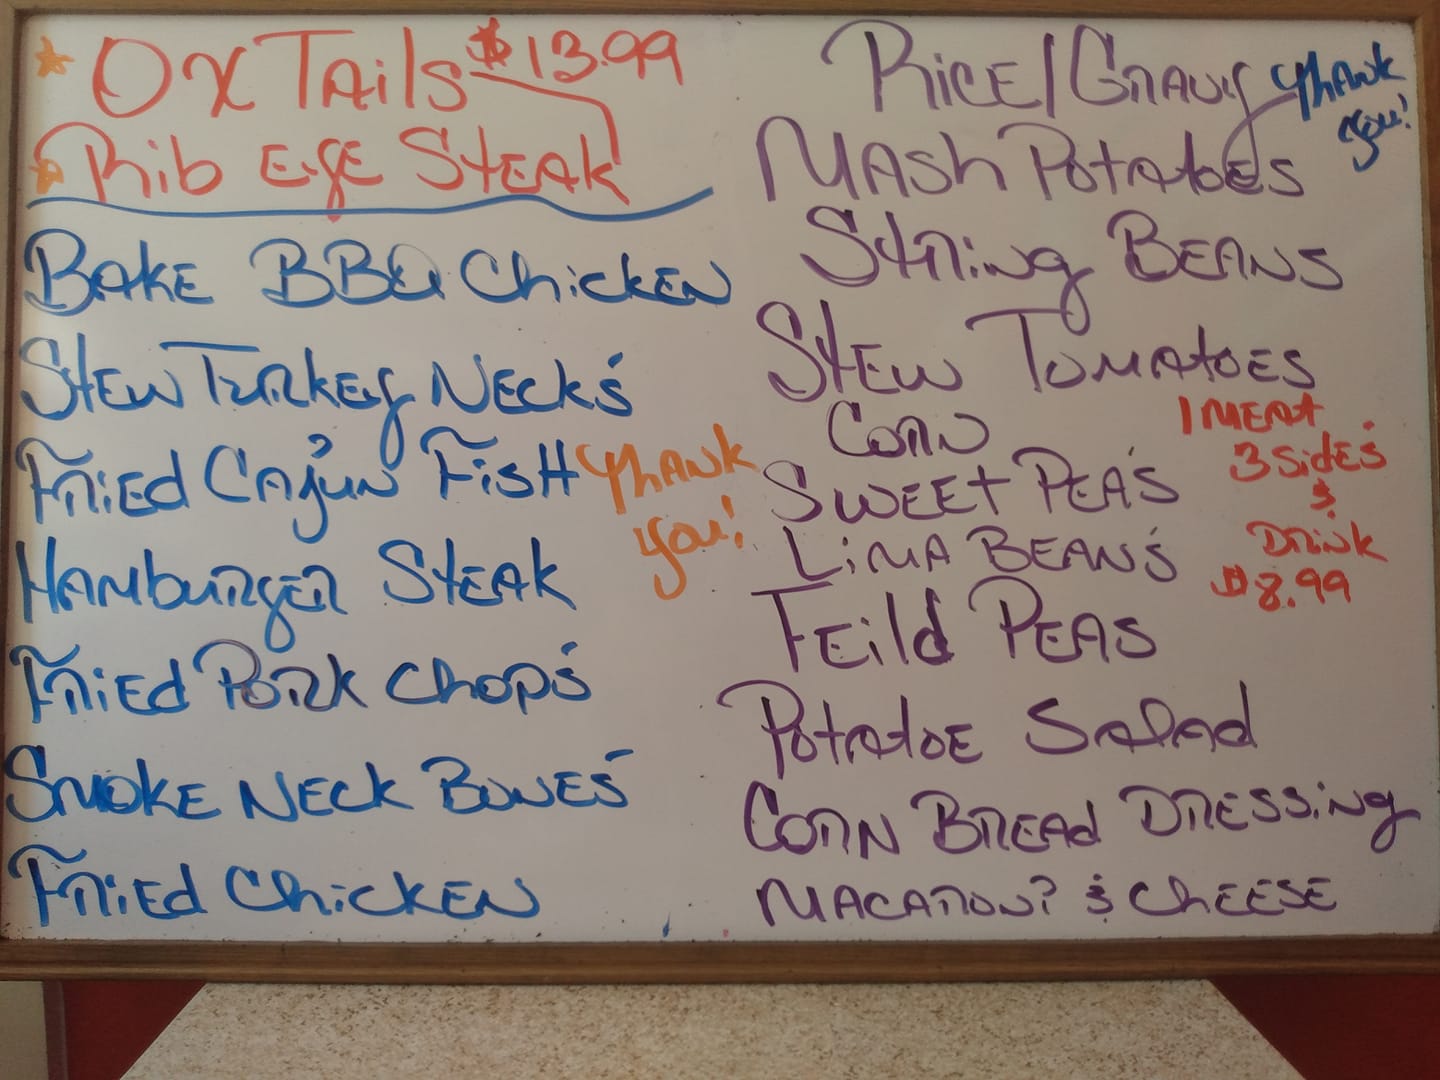 Ox Tails $13.99
Rib Eye Steak
Bake BBQ Chicken
Stew Turkey Neck's
Fried Cajun Fish
Thank
you!
Hamburger Steak
Fried Pork Chop's
Smoke Neck Bones'
Fried Chicken
Rice/Gravy
Thank
you!
Mash Potatoes
String Beans
Stew Tomatoes
Corn
Sweet Pea's
Lima Bean's
Feild Peas
1 Meat
3 Side's
&
Drink
$8.99
Potatoe Salad
Corn Bread Dressing
Macaroni & Cheese